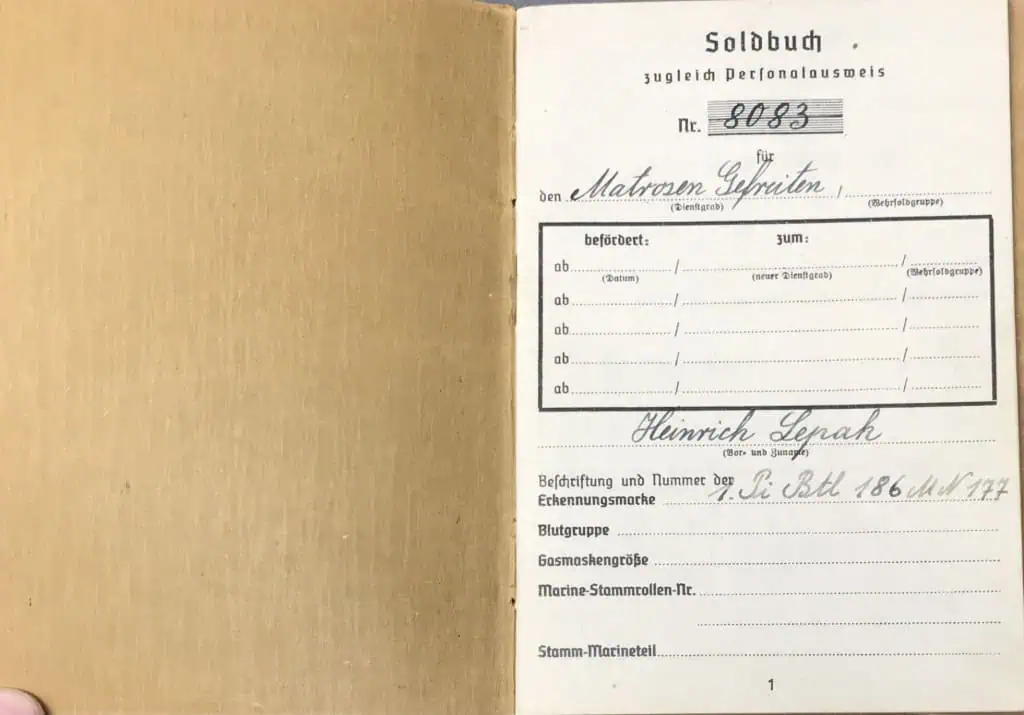 Soldbuch
zugleich Personalausweis
Nr. 8083
für
den Matrosen Gefreiten /
(Dienstgrad) (Wehrsoldgruppe)
befördert: zum:
ab / /
(Datum) (neuer Dienstgrad) (Wehrsoldgruppe)
ab / /
ab / /
ab / /
ab / /
Heinrich Lepah
(Vor- und Zuname)
Beschriftung und Nummer der
Erkennungsmarke 1. Pi Btl 186 M N 177
Blutgruppe
Gasmaskengröße
Marine-Stammrollen-Nr.
Stamm-Marineteil
1